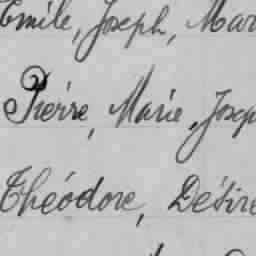 Emile, Joseph, Mar
Pierre, Marie, Josep
Théodore, Désiré